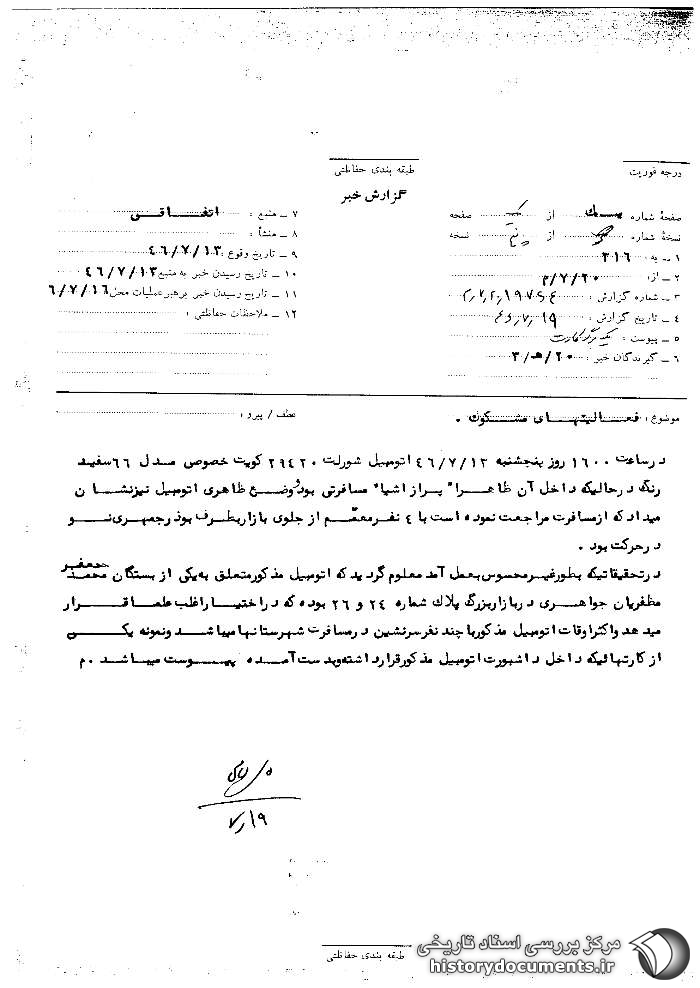 طبقه بندی حفاظتی
درجه فوریت
گزارش خبر
صفحهٔ شماره یک از یک صفحه
نسخهٔ شماره از پنج نسخه
۱ ـ به ۳۱۶
۲ ـ از: ۲۰/۷/م
۳ ـ شماره گزارش:
۴ ـ تاریخ گزارش: ۴۶٫۷٫۱۹
۵ ـ پیوست: یک برگ کارت
۶ ـ گیرندگان خبر: ۲۰/هـ/۳
۷ ـ منبع: اتفاقی
۸ ـ منشأ:
۹ ـ تاریخ وقوع: ۴۶/۷/۱۳
۱۰ ـ تاریخ رسیدن خبر به منبع ۴۶/۷/۱۳
۱۱ ـ تاریخ رسیدن خبر برهبر عملیات محل ۶/۷/۱۶
۱۲ ـ ملاحظات حفاظتی:
موضوع: فعالیتهای مشکوک .
عطف / پیرو:
در ساعت ۱۶۰۰ روز پنجشنبه ۴۶/۷/۱۳ اتومبیل شورلت ۲۹۴۲۰ کویت خصوص مدل ۶۶ سفید
رنگ در حالیکه داخل آن ظاهرا" پر از اشیاء مسافرتی بود و وضع ظاهری اتومبیل نیز نشان
میداد که از مسافرت مراجعت نموده است با ٤ نفر معمّم از جلوی بازار بطرف بوذرجمهری نو
در حرکت بود .
در تحقیقاتیکه بطور غیر محسوس بعمل آمد معلوم گردید که اتومبیل مذکور متعلق به یکی از بستگان محمد جعفر
مظفریان جواهری در بازار بزرگ پلاک شماره ۲٤ و ۲۶ بوده که در اختیار اغلب علما قرار
میدهد و اکثر اوقات اتومبیل مذکور با چند نفر سرنشین در مسافرت شهرستانها میباشد و نمونه یکی
از کارتهائیکه داخل داشبورت اتومبیل مذکور قرار داشته و بدست آمده پیوست میباشد . م
۷٫۱۹
طبقه بندی حفاظتی
مرکز بررسی اسناد تاریخی
historydocuments.ir